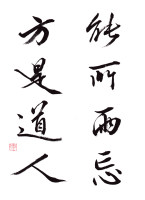 能所兩忘
方是道人